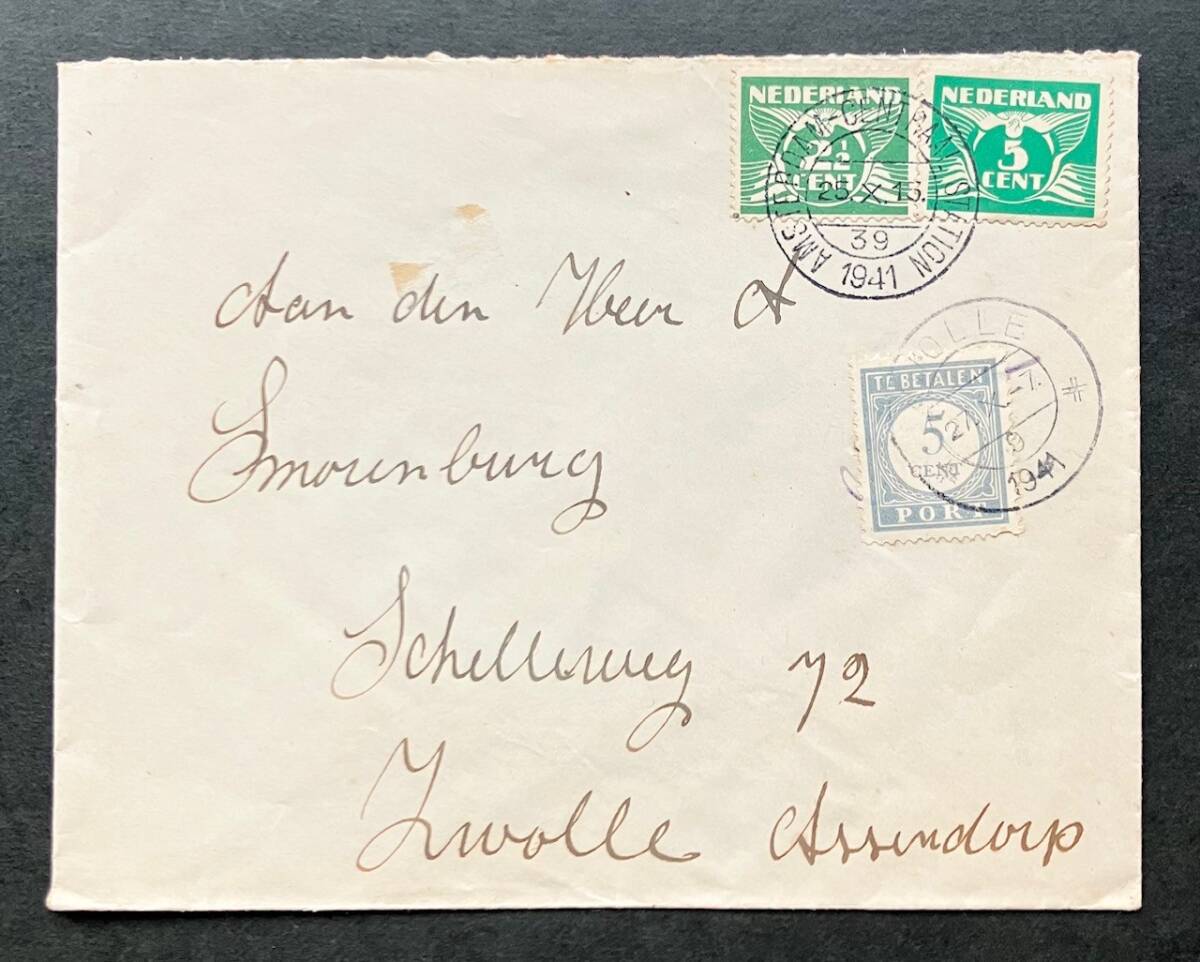 NEDERLAND
2½
CENT
NEDERLAND
5
CENT
AMSTERDAM-CENTRAAL STATION
25.X.13.
39
1941
Aan den Heer A
Smorenburg
ZWOLLE
1941
TE BETALEN
5
CENT
PORT
Schelleweg 72
Zwolle Assendorp